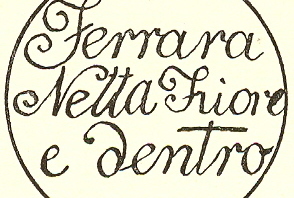 Ferrara
Netta Fuore
e dentro